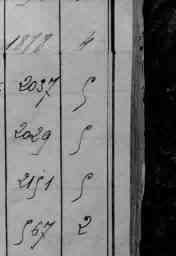 1878 4
2037 5
2029 5
2151 5
567 2